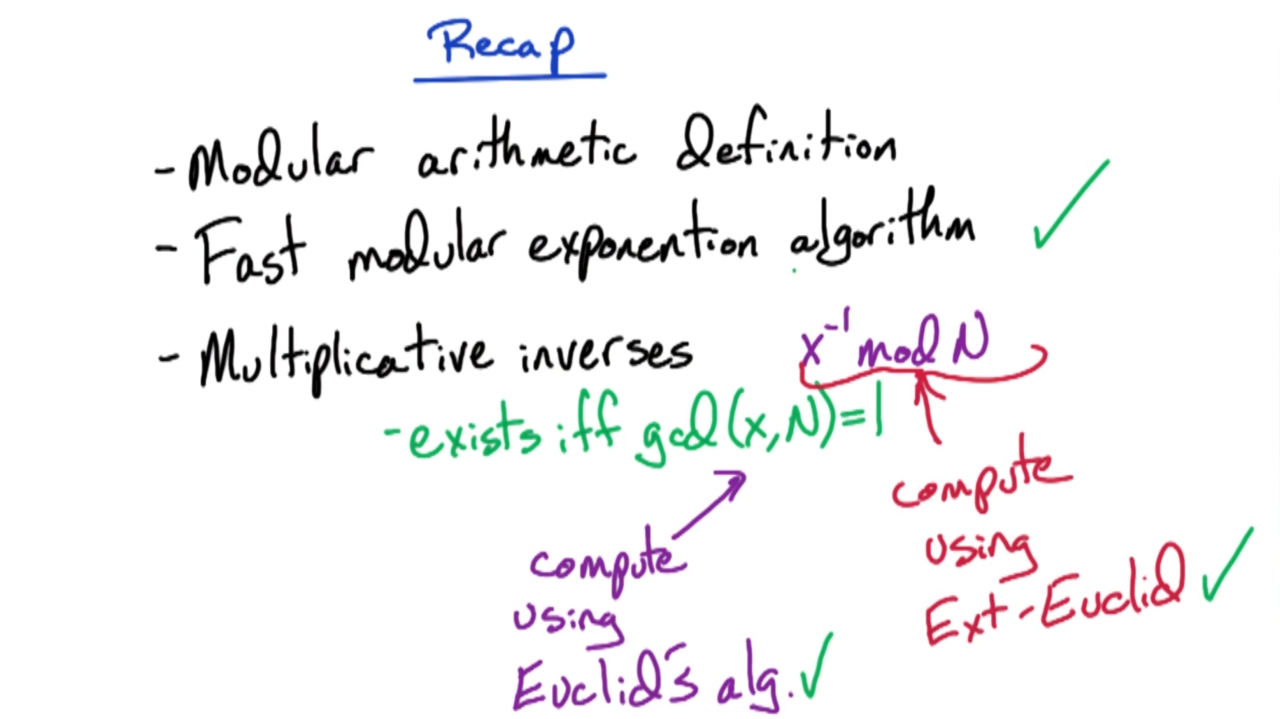 Recap
- Modular arithmetic definition
- Fast modular exponention algorithm
- Multiplicative inverses x⁻¹ mod N
- exists iff gcd(x,N)=1
compute
using
Ext-Euclid ✓
compute
using
Euclid's alg. ✓